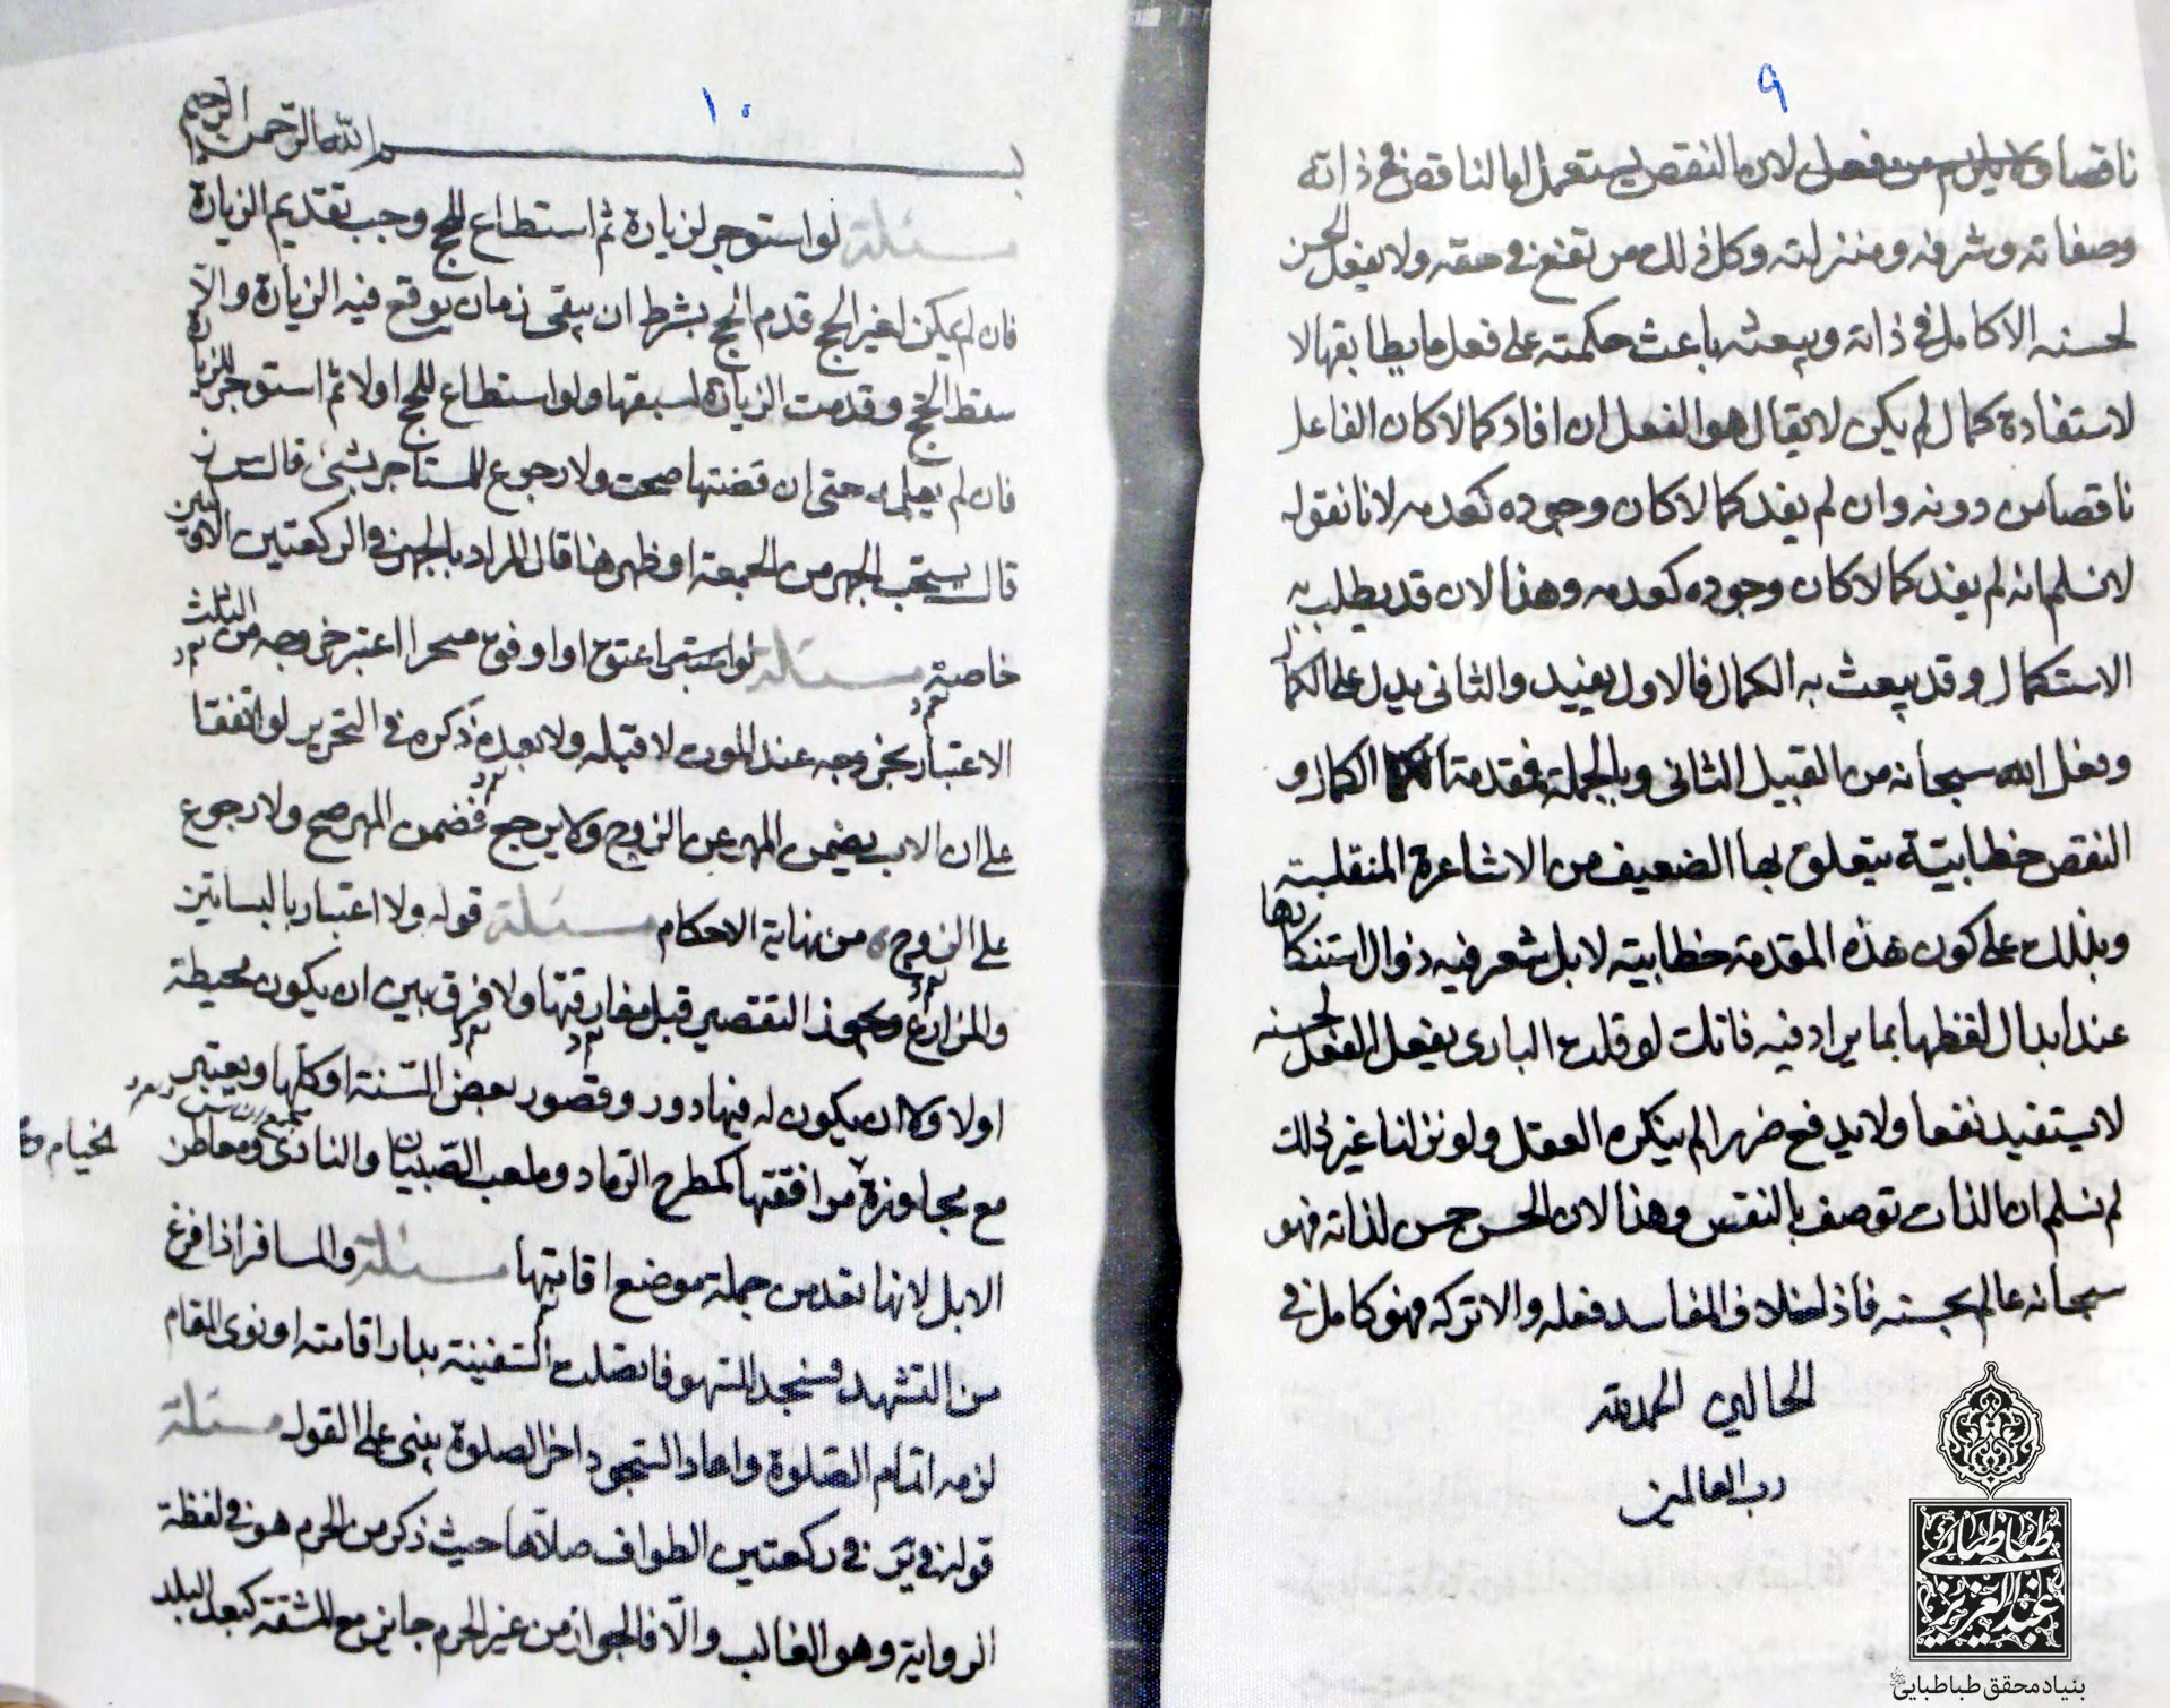 ٩
ناقصا ولا يلزم من فعل لان النقص يستعمل اما لناقص في ذاته
وصفاته وشرفه ومنزلته وكل ذلك من تقنع في حقه ولا يفعل الحسن
لحسنه الا كامل في ذاته ويبعثه باعث حكمته على فعل ما يطابقها لا
لاستفادة كمال لم يكن لا يقال هو الفعل ان افاد كمالا كان الفاعل
ناقصا من دونه وان لم يفد كمالا كان وجوده كعدمه لانا نقول
لا نسلم انه لم يفد كمالا كان وجوده كعدمه وهذا لان قد يطلب به
الاستكمال وقد يبعث به الكمال فالاول يفيد والثاني يدل على الكمال
وفعل الله سبحانه من القبيل الثاني وبالجملة فقدمتا الكمال و
النقص خطابيّة يتعلق بها الضعيف من الاشاعرة المنقلبة
وبذلك على كون هذه المقدمة خطابية لا بل شعر فيه زوال استنكارها
عند ابدال لفظها بما يرادفه فانك لو قلت الباري يفعل الفعل لحسنه
لا يستفيد نفعا ولا يدفع ضررا لم ينكره العقل ولو نزلنا عن ذلك
لم نسلم ان الذات توصف بالنقص وهذا لان الحسن حسن لذاته فهو
سبحانه عالم بحسنه فاذا خلا من المفاسد فعله والا تركه فهو كامل في
الحالين الحمد لله
رب العالمين
طباطبائي
عبد العزيز
بنیاد محقق طباطبایی
١٠
بسم الله الرحمن الرحيم
مسئلة لو استوجر لزيارة ثم استطاع للحج وجب تقديم الزيارة
فان لم يمكن لغير الحج قدم الحج بشرط ان يبقى زمان يوقع فيه الزيارة والّا
سقط الحج وقدمت الزيارة لسبقها ولو استطاع للحج اولا ثم استوجر للزيارة
فان لم يعلم به حتى ان قضتها صحت ولا رجوع للمستاجر بشئ قال
قال يستحب الجهر من الجمعة او ظهرها قال المراد بالجهر في الركعتين الاولتين
خاصة مسئلة لو اعتق او اوقف منجزا اعتبر خروجه من الثلث
الاعتبار بخروجه عند الموت لا قبله ولا بعده ذكره في التحرير لو اتفقا
على ان الاب يضمن المهر عن الزوج ولا يرجع فضمن المهر صح ولا رجوع
على الزوج من نهاية الاحكام مسئلة قوله ولا اعتبار بالبساتين
والمزارع ويجوز التقصير قبل مفارقتها ولا فرق بين ان يكون محيطة
اولا وكان يكون له فيها دور وقصور بعض السّنة او كلها ويعتبر
مع مجاوزة مرافقتها كمطرح الرماد وملعب الصّبيان والنادي ومعاطن
الخيام
الابل لانها تعد من جملة موضع اقامتها مسئلة والمسافر اذا فرغ
من التشهد فسجد للسهو فاتصلت السّفينة بدار اقامته او نوى المقام
لزمه اتمام الصّلوة واعاد السّجود اخر الصلوة يبنى على القول مسئلة
قوله في ير في ركعتين الطواف صلاها حيث ذكر من الحرم هو في لفظة
الرواية وهو الغالب والّا فالجواز من غير الحرم جايز مع المشقة كبعد البلد